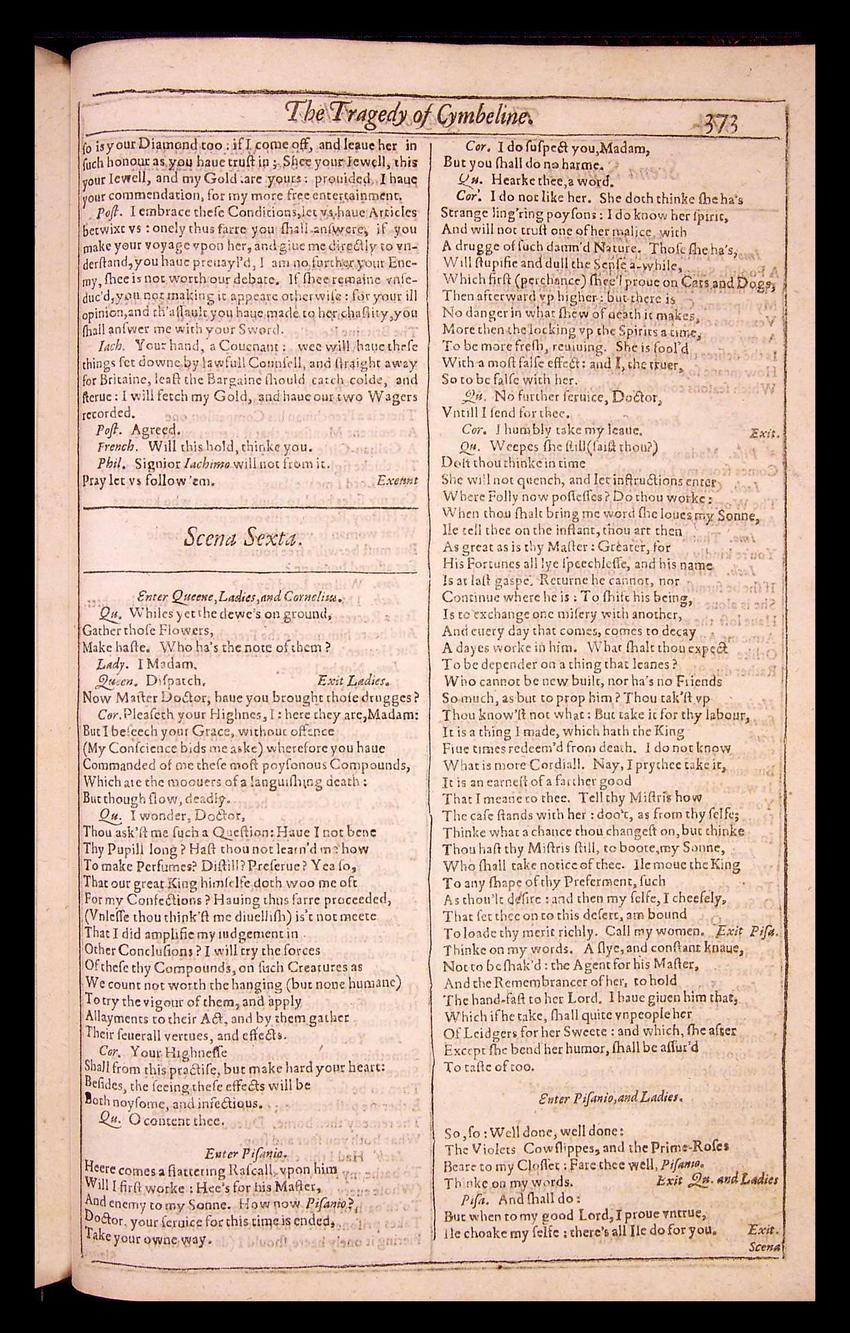 The Tragedy of Cymbeline.
373
so is your Diamond too : if I come off, and leaue her in
such honour as you haue trust in ; Shee your Iewell, this
your Iewell, and my Gold are yours : prouided, I haue
your commendation, for my more free entertainment.
Post. I embrace these Conditions, let vs haue Articles
betwixt vs : onely thus farre you shall answere, if you
make your voyage vpon her, and giue me directly to vn-
derstand, you haue preuayl'd, I am no further your Ene-
my, shee is not worth our debate. If shee remaine vnse-
duc'd, you not making it appeare otherwise : for your ill
opinion, and th'assault you haue made to her chastity, you
shall answer me with your Sword.
Iach. Your hand, a Couenant : wee will haue these
things set downe by lawfull Counsell, and straight away
for Britaine, least the Bargaine should catch colde, and
sterue : I will fetch my Gold, and haue our two Wagers
recorded.
Post. Agreed.
French. Will this hold, thinke you.
Phil. Signior Iachimo will not from it.
Pray let vs follow 'em. Exeunt
Scena Sexta.
Enter Queene, Ladies, and Cornelius.
Qu. Whiles yet the dewe's on ground,
Gather those Flowers,
Make haste. Who ha's the note of them ?
Lady. I Madam.
Queen. Dispatch. Exit Ladies.
Now Master Doctor, haue you brought those drugges?
Cor. Pleaseth your Highnes, I : here they are, Madam:
But I beseech your Grace, without offence
(My Conscience bids me aske) wherefore you haue
Commanded of me these most poysonous Compounds,
Which are the moouers of a languishing death :
But though slow, deadly.
Qu. I wonder, Doctor,
Thou ask'st me such a Question: Haue I not bene
Thy Pupill long ? Hast thou not learn'd me how
To make Perfumes? Distill? Preserue? Yea so,
That our great King himselfe doth woo me oft
For my Confections ? Hauing thus farre proceeded,
(Vnlesse thou think'st me diuellish) is't not meete
That I did amplifie my iudgement in
Other Conclusions ? I will try the forces
Of these thy Compounds, on such Creatures as
We count not worth the hanging (but none humane)
To try the vigour of them, and apply
Allayments to their Act, and by them gather
Their seuerall vertues, and effects.
Cor. Your Highnesse
Shall from this practise, but make hard your heart:
Besides, the seeing these effects will be
Both noysome, and infectious.
Qu. O content thee.
Enter Pisanio.
Heere comes a flattering Rascall, vpon him
Will I first worke : Hee's for his Master,
And enemy to my Sonne. How now Pisanio?
Doctor, your seruice for this time is ended,
Take your owne way.
Cor. I do suspect you, Madam,
But you shall do no harme.
Qu. Hearke thee, a word.
Cor. I do not like her. She doth thinke she ha's
Strange ling'ring poysons : I do know her spirit,
And will not trust one of her malice, with
A drugge of such damn'd Nature. Those she ha's,
Will stupifie and dull the Sense a-while,
Which first (perchance) shee'l proue on Cats and Dogs,
Then afterward vp higher : but there is
No danger in what shew of death it makes,
More then the locking vp the Spirits a time,
To be more fresh, reuiuing. She is fool'd
With a most false effect : and I, the truer,
So to be false with her.
Qu. No further seruice, Doctor,
Vntill I send for thee.
Cor. I humbly take my leaue. Exit.
Qu. Weepes she still (saist thou?)
Dost thou thinke in time
She will not quench, and let instructions enter
Where Folly now possesses? Do thou worke :
When thou shalt bring me word she loues my Sonne,
Ile tell thee on the instant, thou art then
As great as is thy Master : Greater, for
His Fortunes all lye speechlesse, and his name
Is at last gaspe. Returne he cannot, nor
Continue where he is : To shift his being,
Is to exchange one misery with another,
And euery day that comes, comes to decay
A dayes worke in him. What shalt thou expect
To be depender on a thing that leanes ?
Who cannot be new built, nor ha's no Friends
So much, as but to prop him ? Thou tak'st vp
Thou know'st not what : But take it for thy labour,
It is a thing I made, which hath the King
Fiue times redeem'd from death. I do not know
What is more Cordiall. Nay, I prythee take it,
It is an earnest of a farther good
That I meane to thee. Tell thy Mistris how
The case stands with her : doo't, as from thy selfe;
Thinke what a chance thou changest on, but thinke
Thou hast thy Mistris still, to boote, my Sonne,
Who shall take notice of thee. Ile moue the King
To any shape of thy Preferment, such
As thou'lt desire : and then my selfe, I cheefely,
That set thee on to this desert, am bound
To loade thy merit richly. Call my women. Exit Pisa.
Thinke on my words. A slye, and constant knaue,
Not to be shak'd : the Agent for his Master,
And the Remembrancer of her, to hold
The hand-fast to her Lord. I haue giuen him that,
Which if he take, shall quite vnpeople her
Of Leidgers for her Sweete : and which, she after
Except she bend her humor, shall be assur'd
To taste of too.
Enter Pisanio, and Ladies.
So, so : Well done, well done :
The Violets Cowslippes, and the Prime-Roses
Beare to my Closset : Fare thee well, Pisanio.
Thinke on my words. Exit Qu. and Ladies
Pisa. And shall do :
But when to my good Lord, I proue vntrue,
Ile choake my selfe : there's all Ile do for you. Exit.
Scena